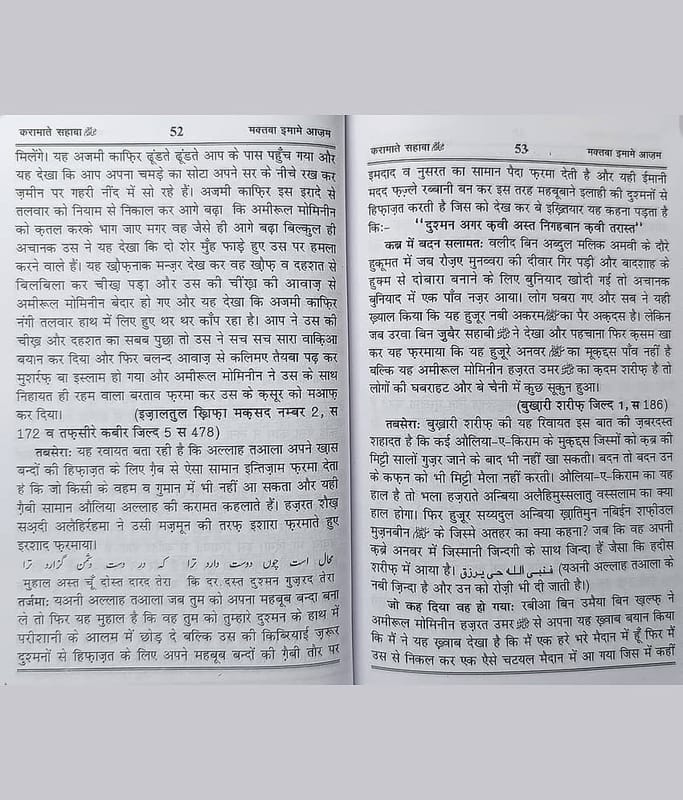 करामाते सहाबा ﷺ 52 मक्तबा इमामे आज़म
मिलेंगे। यह अजमी काफ़िर ढूंडते ढूंडते आप के पास पहुँच गया और
यह देखा कि आप अपना चमड़े का सोटा अपने सर के नीचे रख कर
ज़मीन पर गहरी नींद में सो रहे हैं। अजमी काफ़िर इस इरादे से
तलवार को नियाम से निकाल कर आगे बढ़ा कि अमीरूल मोमिनीन
को क़तल करके भाग जाए मगर वह जैसे ही आगे बढ़ा बिल्कुल ही
अचानक उस ने यह देखा कि दो शेर मुँह फाड़े हुए उस पर हमला
करने वाले हैं। यह ख़ौफ़नाक मन्ज़र देख कर वह ख़ौफ़ व दहशत से
बिलबिला कर चीख़ पड़ा और उस की चींख़ की आवाज़ से
अमीरूल मोमिनीन बेदार हो गए और यह देखा कि अजमी काफ़िर
नंगी तलवार हाथ में लिए हुए थर थर काँप रहा है। आप ने उस की
चीख़ और दहशत का सबब पुछा तो उस ने सच सच सारा वाक़िआ
बयान कर दिया और फिर बलन्द आवाज़ से कलिमए तैयबा पढ़ कर
मुशर्रफ़ बा इस्लाम हो गया और अमीरूल मोमिनीन ने उस के साथ
निहायत ही रहम वाला बरताव फ़रमा कर उस के क़सूर को मआफ़
कर दिया। (इज़ालतुल ख़िफ़ा। मक़सद नम्बर 2, स
172 व तफ़सीरे कबीर जिल्द 5 स 478)
तबसेरा: यह रवायत बता रही है कि अल्लाह तआला अपने ख़ास
बन्दों की हिफ़ाज़त के लिए ग़ैब से ऐसा सामान इन्तिज़ाम फ़रमा देता
है कि जो किसी के वहम व गुमान में भी नहीं आ सकता और यही
ग़ैबी सामान औलिया अल्लाह की करामत कहलाते हैं। हज़रत शैख़
सअ़दी अलेहिर्रहमा ने उसी मज़मून की तरफ़ इशारा फ़रमाते हुए
इरशाद फ़रमाया।
محال است چوں دوست دارد ترا کہ در دست دشمن گزارد ترا
मुहाल अस्त चूँ दोस्त दारद तेरा कि दर दस्त दुश्मन गुज़रद तेरा
तर्जमा: यअनी अल्लाह तआला जब तुम को अपना महबूब बन्दा बना
ले तो फिर यह मुहाल है कि वह तुम को तुम्हारे दुश्मन के हाथ में
परीशानी के आलम में छोड़ दे बल्कि उस की किब्रियाई ज़रूर
दुश्मनों से हिफ़ाज़त के लिए अपने महबूब बन्दों की ग़ैबी तौर पर
करामाते सहाबा ﷺ 53 मक्तबा इमामे आज़म
इमदाद व नुसरत का सामान पैदा फ़रमा देती है और यही ईमानी
मदद फ़ज़्ले रब्बानी बन कर इस तरह महबूबाने इलाही की दुश्मनों से
हिफ़ाज़त करती है जिस को देख कर बे इख़्तियार यह कहना पड़ता है
कि:- "दुश्मन अगर क़वी अस्त निगहबान क़वी तरास्त"
कब्र में बदन सलामत: वलीद बिन अब्दुल मलिक अमवी के दौरे
हुकूमत में जब रोज़ए मुनव्वरा की दीवार गिर पड़ी और बादशाह के
हुक्म से दोबारा बनाने के लिए बुनियाद खोदी गई तो अचानक
बुनियाद में एक पाँव नज़र आया। लोग घबरा गए और सब ने यही
ख़्याल किया कि यह हुज़ूर नबी अकरम ﷺ का पैर अक़दस है। लेकिन
जब उरवा बिन जुबैर सहाबी ने देखा और पहचाना फिर क़सम खा
कर यह फ़रमाया कि यह हुज़ूरे अनवर ﷺ का मूक़द्दस पाँव नहीं है
बल्कि यह अमीरूल मोमिनीन हज़रत उमर का क़दम शरीफ़ है तो
लोगों की घबराहट और बे चेनी में कुछ सुकून हुआ।
(बुख़ारी शरीफ़ जिल्द 1, स 186)
तबसेरा: बुख़ारी शरीफ़ की यह रिवायत इस बात की ज़बरदस्त
शहादत है कि कई औलिया-ए-किराम के मुक़द्दस जिस्मों को क़ब्र की
मिट्टी सालों गुज़र जाने के बाद भी नहीं खा सकती। बदन तो बदन उन
के कफ़न को भी मिट्टी मैला नहीं करती। औलिया-ए-किराम का यह
हाल है तो भला हज़राते अम्बिया अलेहिमुस्सलातु वस्सलाम का क्या
हाल होगा। फिर हुज़ूर सय्यदुल अम्बिया ख़ातिमुन नबिईन शाफ़ीउल
मुज़नबीन ﷺ के जिस्मे अतहर का क्या कहना? जब कि वह अपनी
क़ब्रे अनवर में जिस्मानी जिन्दगी के साथ जिन्दा हैं जैसा कि हदीस
शरीफ़ में आया है। فنبی اللہ حی یرزق (यअनी अल्लाह तआला के
नबी ज़िन्दा है और उन को रोज़ी भी दी जाती है।)
जो कह दिया वह हो गया: रबीआ बिन उमैया बिन ख़ल्फ़ ने
अमीरूल मोमिनीन हज़रत उमर से अपना यह ख़्वाब बयान किया
कि मैं ने यह ख़्वाब देखा है कि मैं एक हरे भरे मैदान में हूँ फिर में
उस से निकल कर एक ऐसे चटयल मैदान में आ गया जिस में कहीं